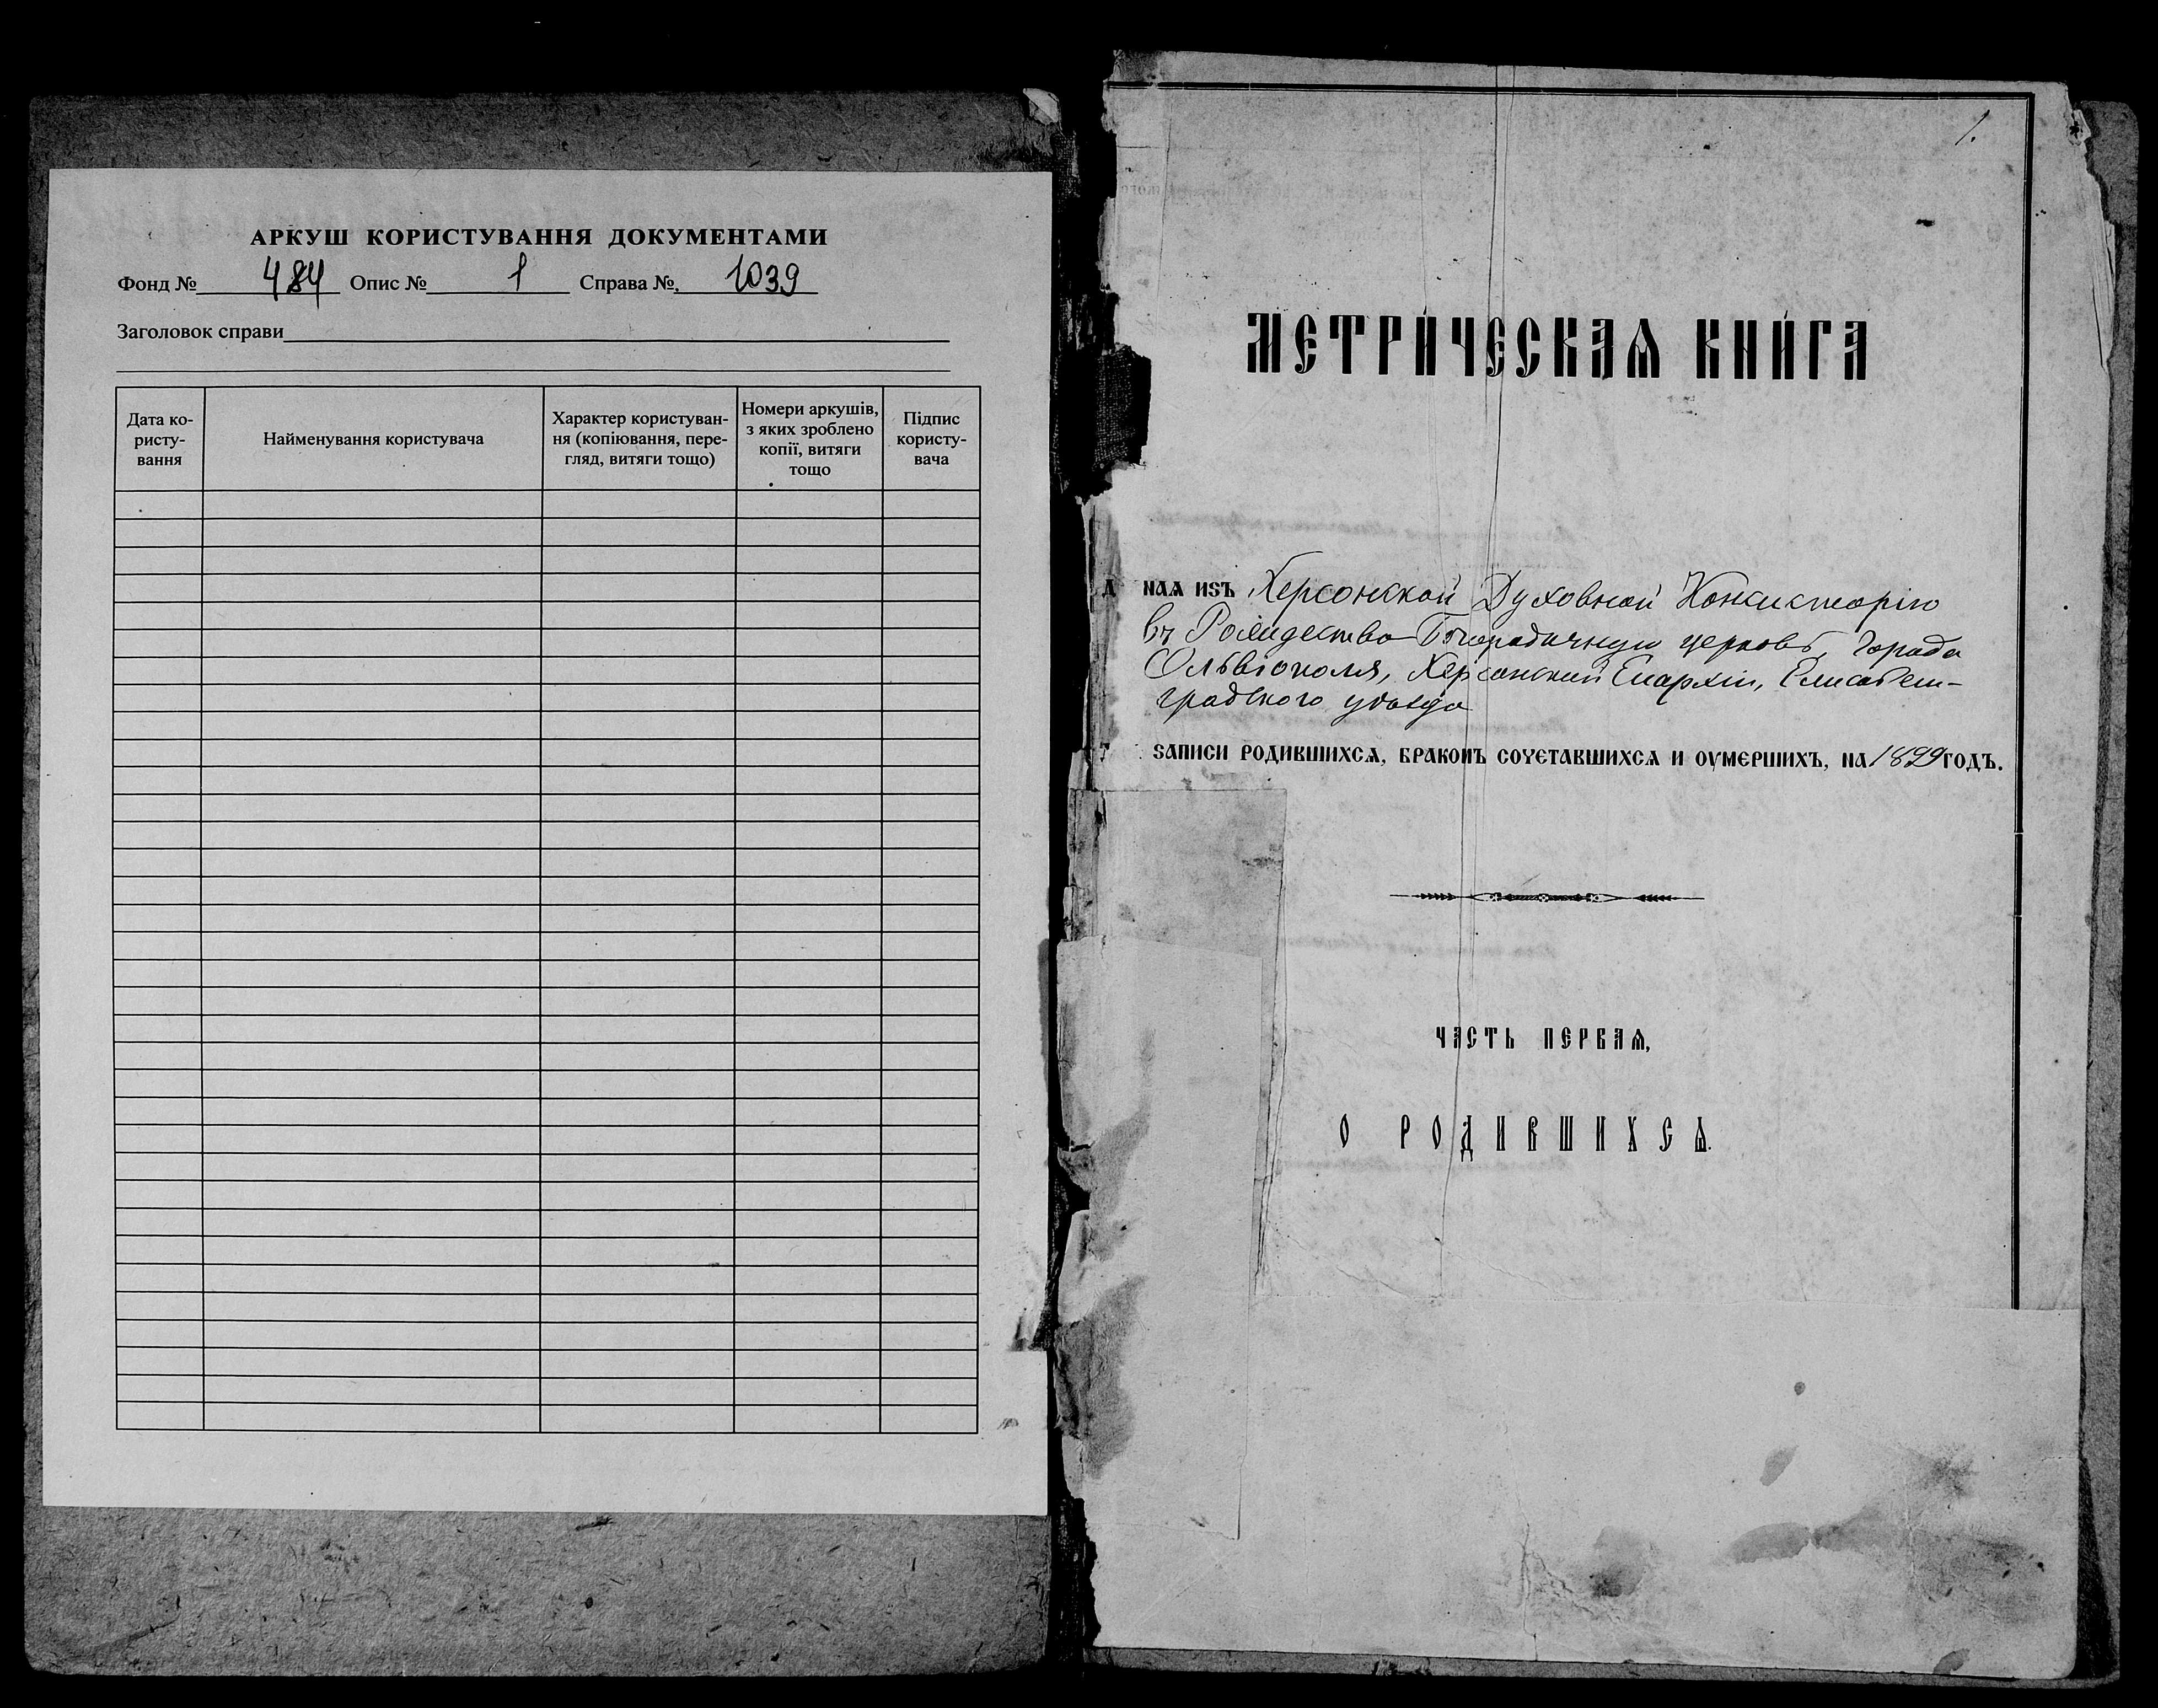 АРКУШ КОРИСТУВАННЯ ДОКУМЕНТАМИ
Фонд № 484 Опис № 1 Справа № 1039
Заголовок справи
Дата ко-
ристу-
вання
Найменування користувача
Характер користуван-
ня (копіювання, пере-
гляд, витяги тощо)
Номери аркушів,
з яких зроблено
копії, витяги
тощо
Підпис
користу-
вача
1.
МЕТРИЧЕСКАѦ КНИГА
Д наѧ изъ Херсонской Духовной Консисторіи
въ Рождество-Богородичную церковь, города
Ольвіополя, Херсонской Епархіи, Елисавет-
градского уѣзда
ꙃаписи родившихсѧ, бракомъ сочетавшихсѧ и оумершихъ, на 1899 годъ.
ЧАСТЬ ПЕРВАѦ,
О РОДИВШИХСѦ.